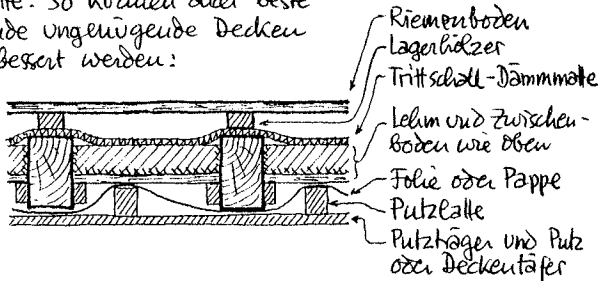 So können aber beste
ungenügende Decken
bessert werden:
Riemenboden
Lagerhölzer
Trittschall-Dämmmatte
Lehm und Zwischen-
boden wie oben
Folie oder Pappe
Putzlatte
Putzträger und Putz
oder Deckentäfer